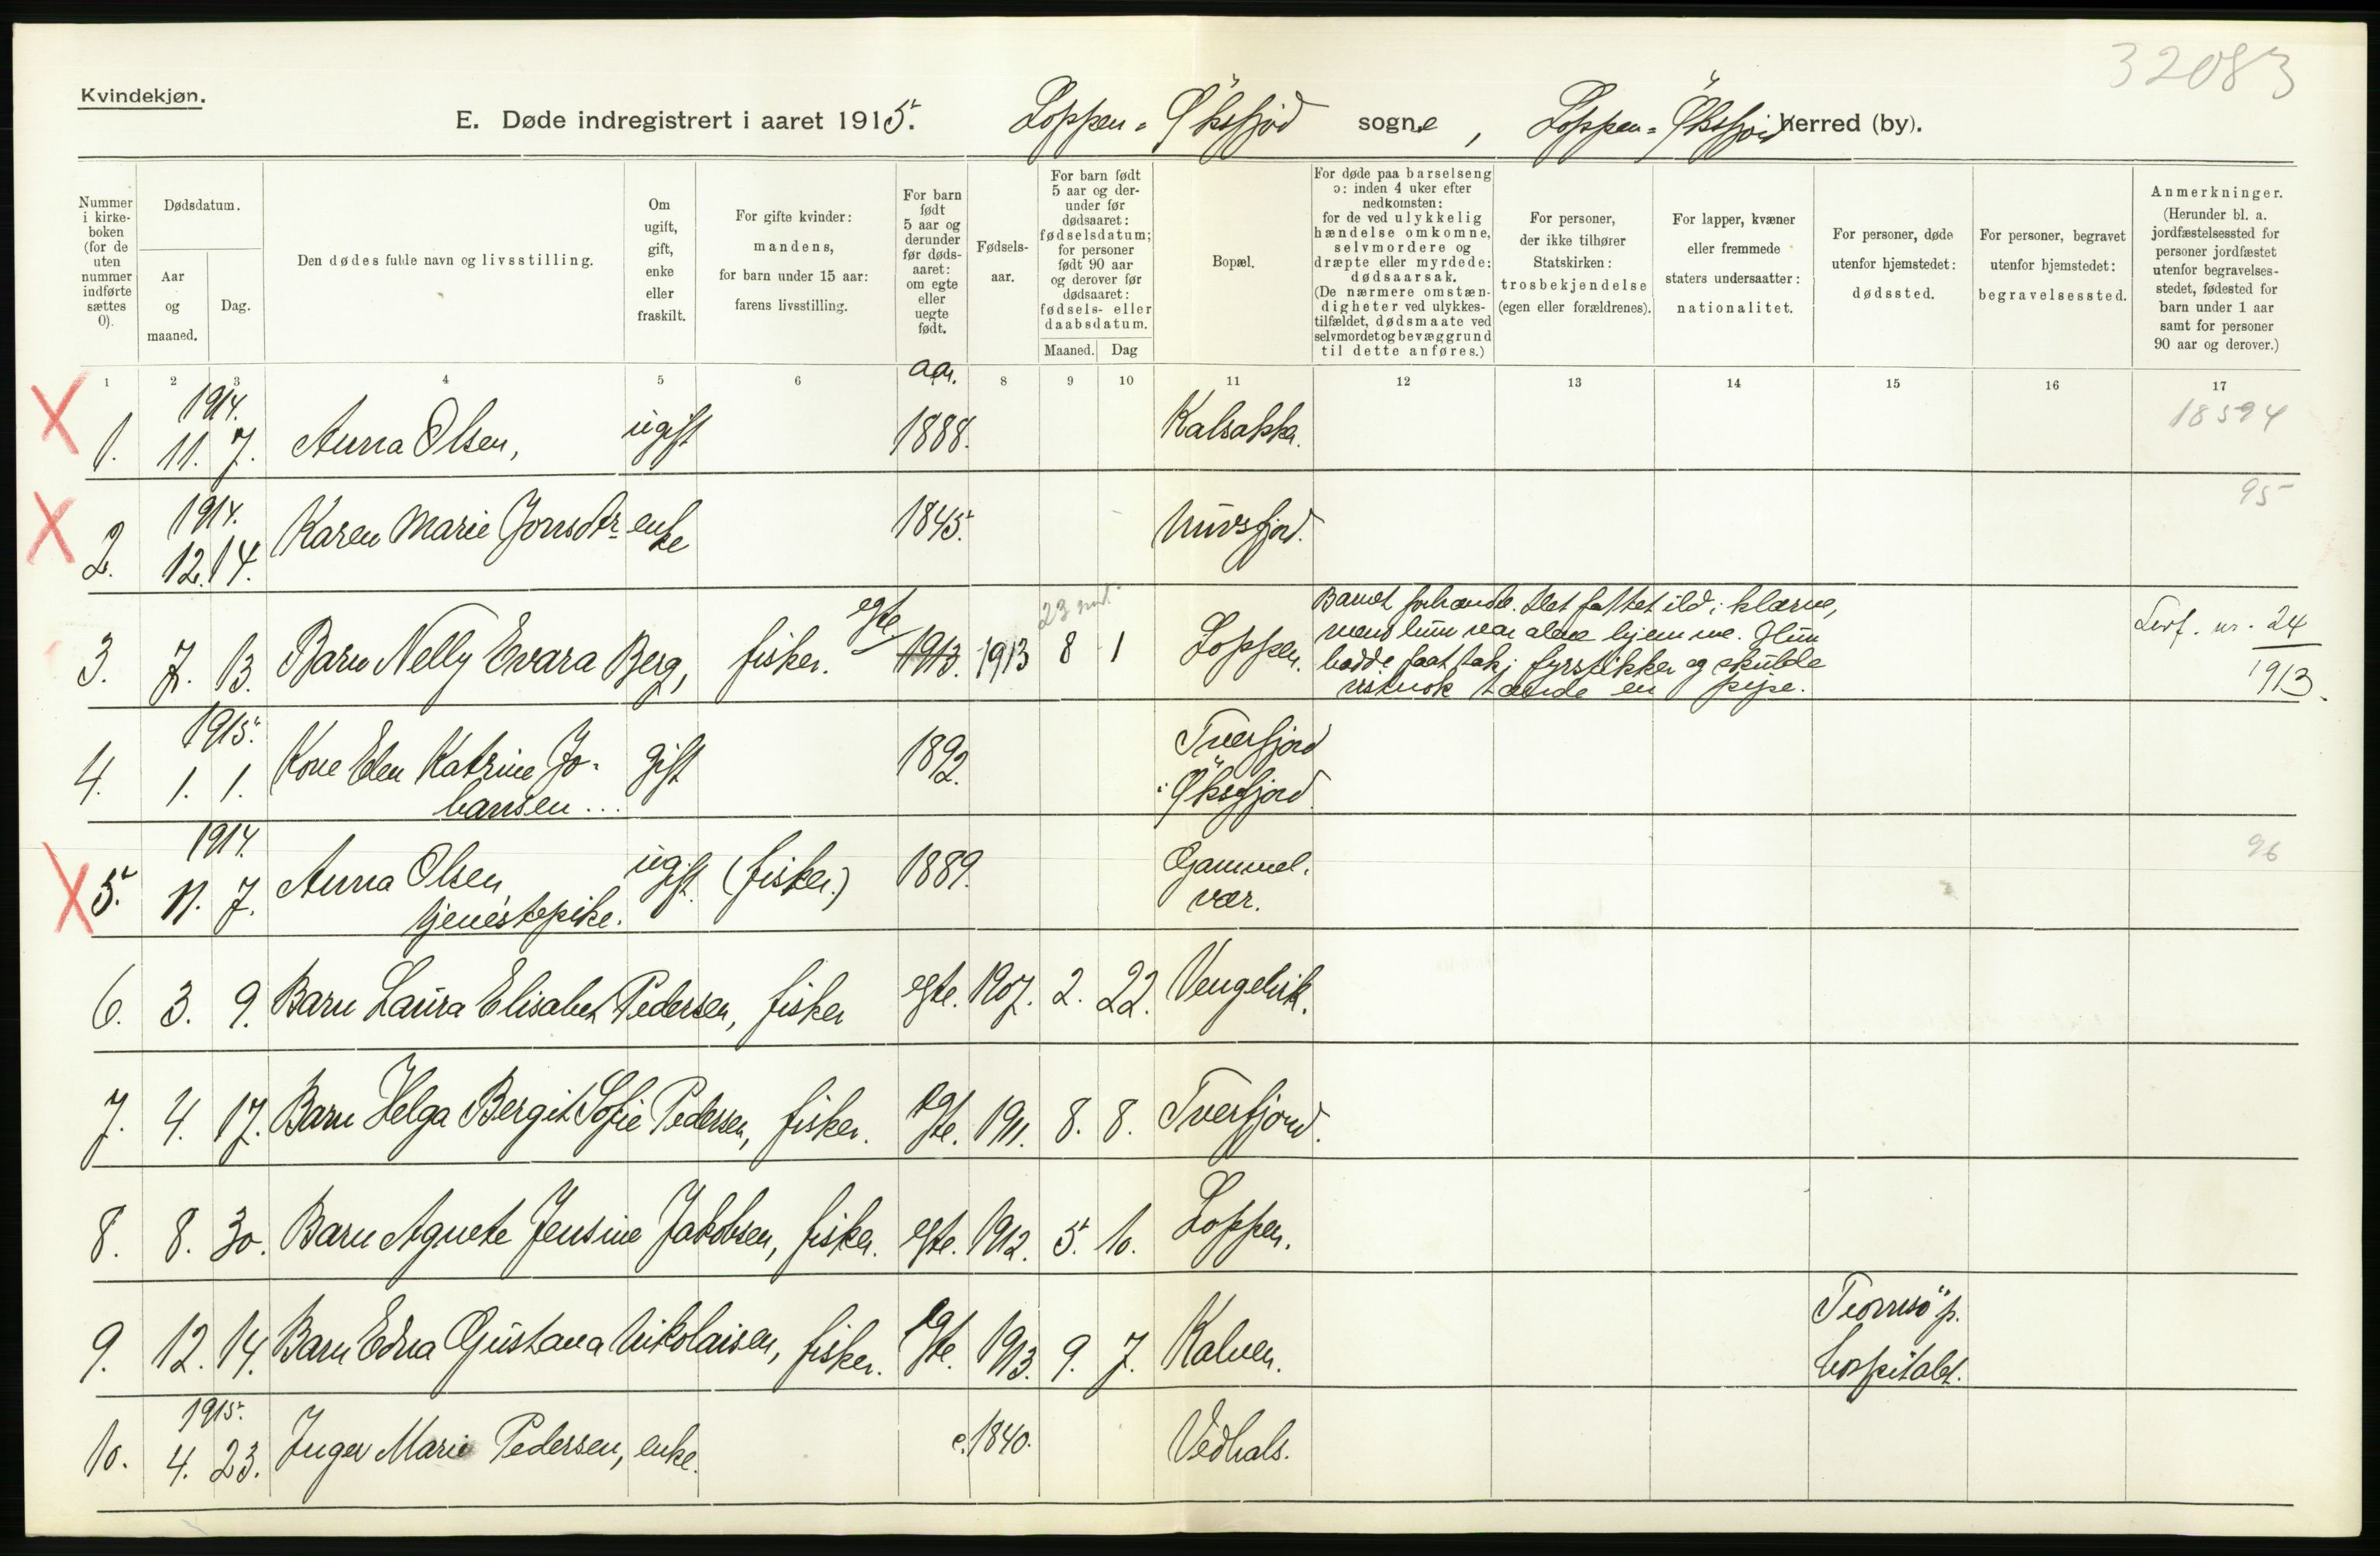 32083
Kvindekjøn.
E. Døde indregistrert i aaret 1915. Loppen - Øksfjord sogne, Loppen - Øksfjord herred (by).
Nummer i kirkeboken (for de uten nummer indførte sættes 0).
Dødsdatum.
Aar og maaned.
Dag.
Den dødes fulde navn og livsstilling.
Om ugift, gift, enke eller fraskilt.
For gifte kvinder: mandens, for barn under 15 aar: farens livsstilling.
For barn født 5 aar og derunder før dødsaaret: om egte eller uegte født.
Fødselsaar.
For barn født 5 aar og derunder før dødsaaret: fødselsdatum; for personer født 90 aar og derover før dødsaaret: fødsels- eller daabsdatum.
Maaned. Dag
Bopæl.
For døde paa barselseng ɔ: inden 4 uker efter nedkomsten: for de ved ulykkelig hændelse omkomne, selvmordere og dræpte eller myrdede: dødsaarsak. (De nærmere omstændigheter ved ulykkestilfældet, dødsmaate ved selvmordet og bevæggrund til dette anføres.)
For personer, der ikke tilhører Statskirken: trosbekjendelse (egen eller forældrenes).
For lapper, kvæner eller fremmede staters undersaatter: nationalitet.
For personer, døde utenfor hjemstedet: dødssted.
For personer, begravet utenfor hjemstedet: begravelsessted.
Anmerkninger. (Herunder bl. a. jordfæstelsessted for personer jordfæstet utenfor begravelsesstedet, fødested for barn under 1 aar samt for personer 90 aar og derover.)
1 2 3 4 5 6 aar. 8 9 10 11 12 13 14 15 16 17
1914.
1. 11. 7. Anna Olsen, ugift 1888. Kalsakka. 18594
1914.
2. 12. 14. Karen Marie Jonsdtr enke 1845. Nuvsfjord. 95
3. 7. 13. Barn Nelly Evara Berg, fisker. egte 1913. 1913 8 1 Loppen.
Barnet forbrændte. Det fattet ild i klærne,
mens hun var alene hjemme. Hun
hadde faat tak i fyrstikker og skulde
visnok tænde en pipe.
Levf. nr. 24
1913.
1915.
4. 1. 1. Kone Elen Katrine Johansen... gift 1892. Tverfjord
i Øksfjord.
1914.
5. 11. 7. Anna Olsen, ugift. (fisker.) 1889. Gammel-
tjenestepike. vær. 96
6. 3. 9. Barn Laura Elisabet Pedersen, fisker egte. 1907. 2. 22. Vengelvik.
7. 4. 17. Barn Helga Bergit Sofie Pedersen, fisker. egte. 1911. 8. 8. Tverfjord.
8. 8. 30. Barn Agnete Jensine Jakobsen, fisker. egte. 1912. 5. 10. Loppen.
9. 12. 14. Barn Edna Gustava Nikolaisen, fisker. egte. 1913. 9. 7. Kalven. Tromsö p.
hospitalet.
1915.
10. 4. 23. Inger Marie Pedersen, enke. c. 1840. Vedhals.